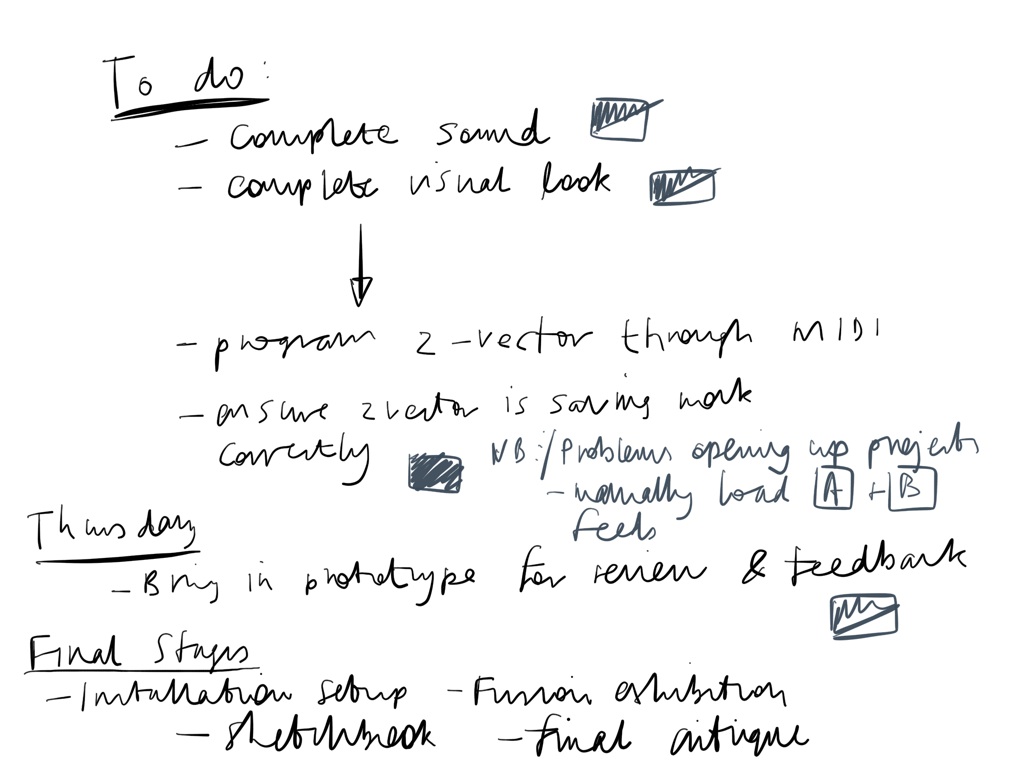 To do:
- Complete sound
- complete visual look
- program z-vector through MIDI
- ensure zvector is saving work
correctly
NB:/Problems opening up projects
- manually load A + B
feeds
Thursday
- Bring in prototype for review & feedback
Final Stages
- Installation setup - Fusion exhibition
- Sketchbook - final critique